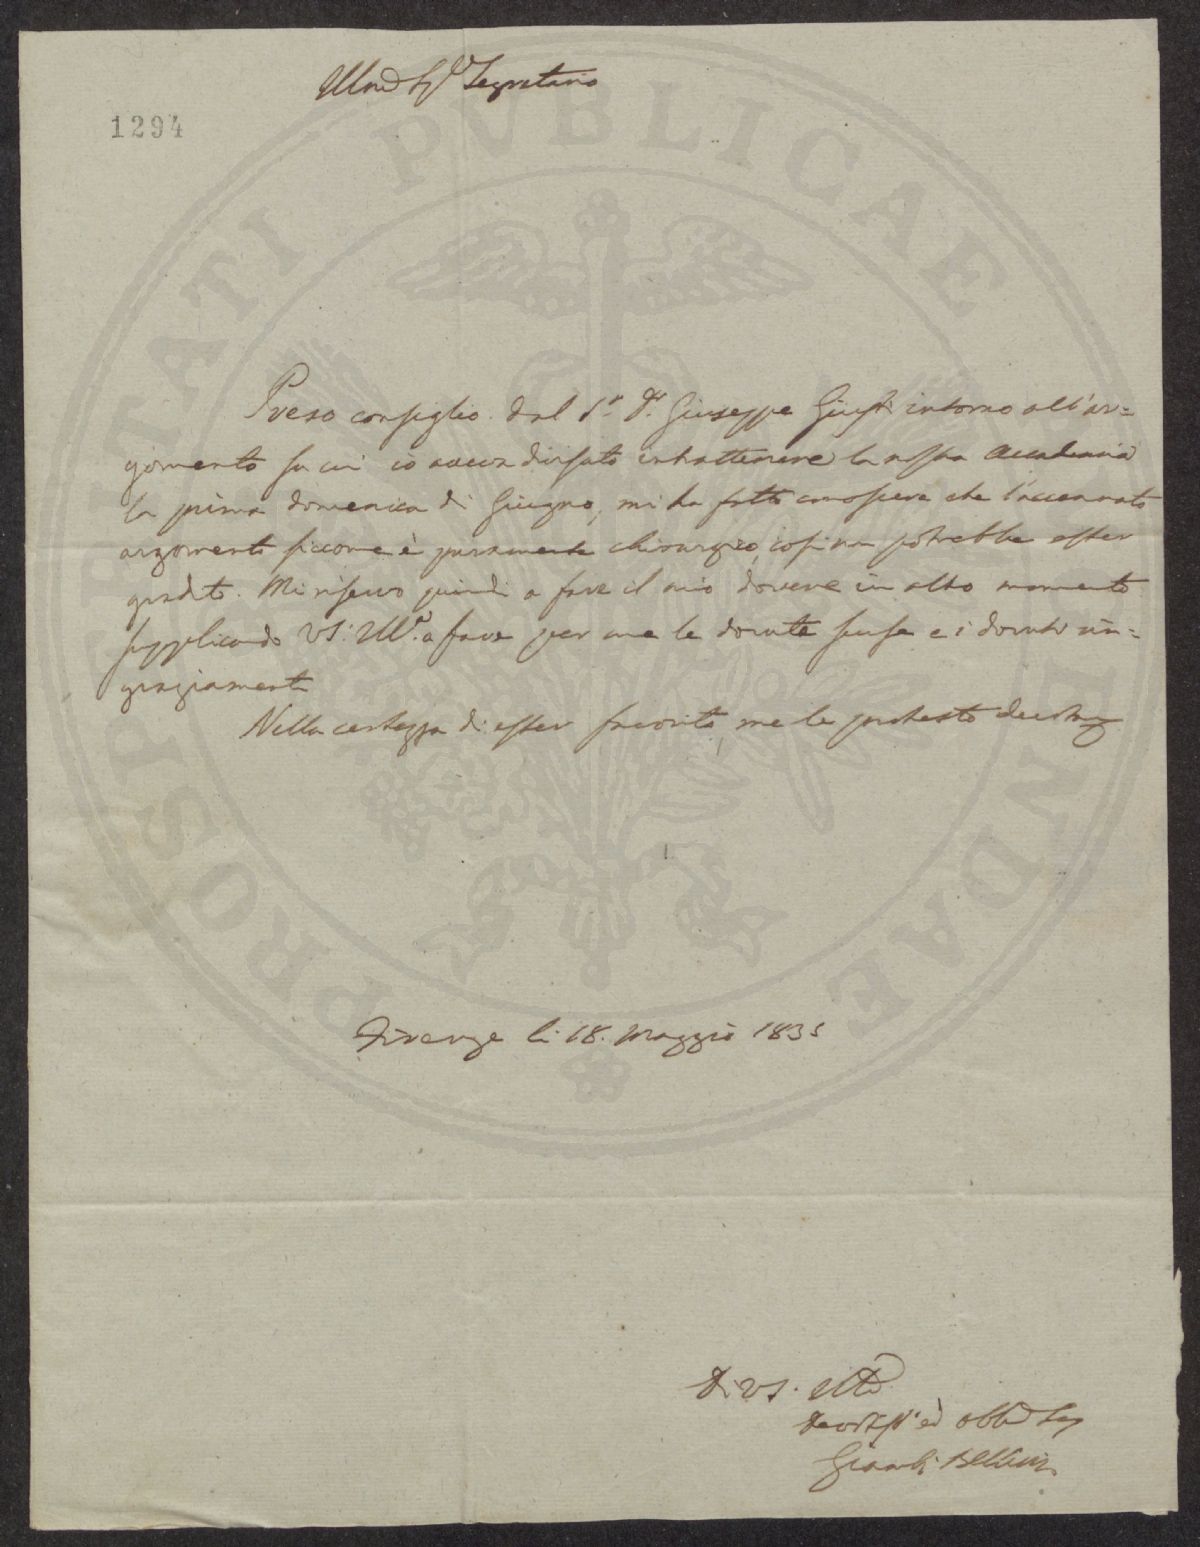 Illmo Sigr Segretario
1294
Preso consiglio dal Sr. Dr. Giuseppe Giusti intorno all'ar=
gomento su cui io aveva divisato intrattenere la nostra Accademia
la prima domenica di Giugno, mi ha fatto conoscere che l'accennato
argomento siccome è puramente chirurgico, così non potrebbe esser
gradito. Mi riservo quindi a fare il mio dovere in altro momento
supplicando VS: Illma. a fare per me le dovute scuse e i dovuti rin=
graziamenti
Nella certezza di esser favorito me le protesto
Firenze li 18. Maggio 1835
Di VS. Illma
Devotissmo ed Obbmo
Bellini
PROSPERITATI PVBLICAE AVGENDAE